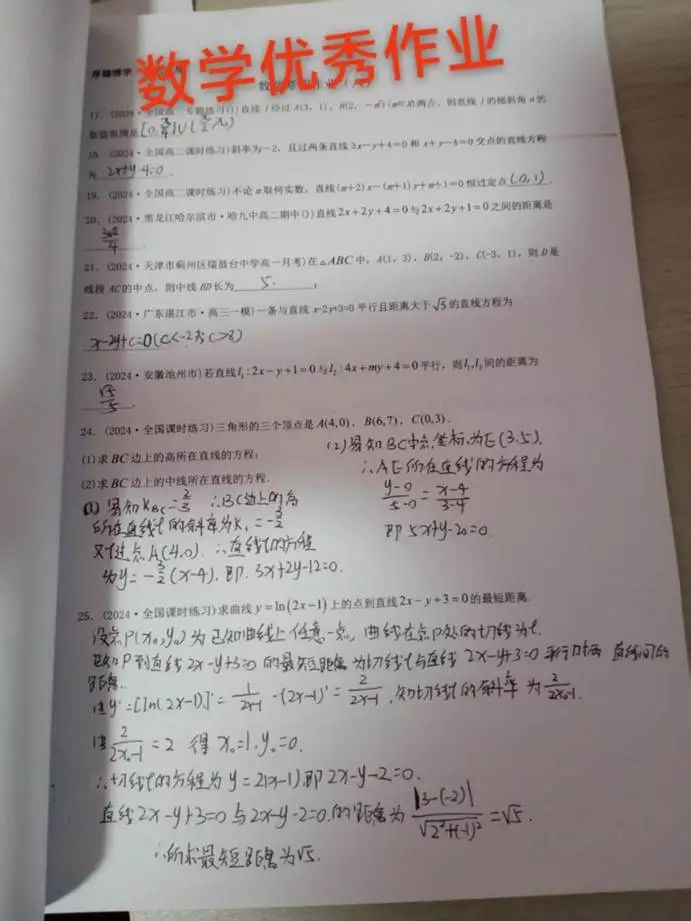 数学优秀作业
厚德博学
17. (2024·全国高二专题练习())直线 l 经过 A(3, 1), B(2, -m²)(m∈R)两点, 则直线 l 的倾斜角 α 的
取值范围是
18. (2024·全国高二课时练习)斜率为-2, 且过两条直线 3x-y+4=0 和 x+y-4=0 交点的直线方程
为 2x+y-4=0.
19. (2024·全国高二课时练习)不论 m 取何实数, 直线(m+2)x-(m+1)y+m+1=0 恒过定点 (0,1).
20. (2024·黑龙江哈尔滨市·哈九中高二期中())直线2x+2y+4=0与2x+2y+1=0之间的距离是
3√2/4.
21. (2024·天津市蓟州区擂鼓台中学高一月考)在△ABC 中, A(1, 3), B(2, -2), C(-3, 1), 则 D 是
线段 AC 的中点, 则中线 BD 长为 5.
22. (2024·广东湛江市·高三一模)一条与直线 x-2y+3=0 平行且距离大于√5的直线方程为
x-2y+C=0(C<-2或C>8)
23. (2024·安徽池州市)若直线l₁:2x-y+1=0与l₂:4x+my+4=0平行, 则l₁,l₂间的距离为
√5/5.
24. (2024·全国课时练习)三角形的三个顶点是A(4,0), B(6,7), C(0,3).
(1)求BC边上的高所在直线的方程;
(2)求BC边上的中线所在直线的方程.
(1) 易知K_BC=2/3 ∴BC边上的高
所在直线l的斜率为K₁=-3/2
又l过点A(4,0). ∴直线l的方程
为y=-3/2(x-4). 即. 3x+2y-12=0.
(2)易知BC中点坐标为E(3,5).
∴AE所在直线的方程为
(y-0)/(5-0)=(x-4)/(3-4)
即5x+y-20=0.
25. (2024·全国课时练习)求曲线y=ln(2x-1)上的点到直线2x-y+3=0的最短距离.
设点P(x₀,y₀)为已知曲线上任意一点, 曲线在点P处的切线为l.
P到直线2x-y+3=0的最短距离为切线l与直线2x-y+3=0平行时两直线间的
距离.
由y'=[ln(2x-1)]'=1/(2x-1)·(2x-1)'=2/(2x-1). 知切线l的斜率为2/(2x₀-1).
由2/(2x₀-1)=2 得x₀=1,y₀=0.
∴切线l的方程为y=2(x-1)即2x-y-2=0.
直线2x-y+3=0与2x-y-2=0.的距离为|3-(-2)|/√(2²+(-1)²)=√5.
∴所求最短距离为√5.